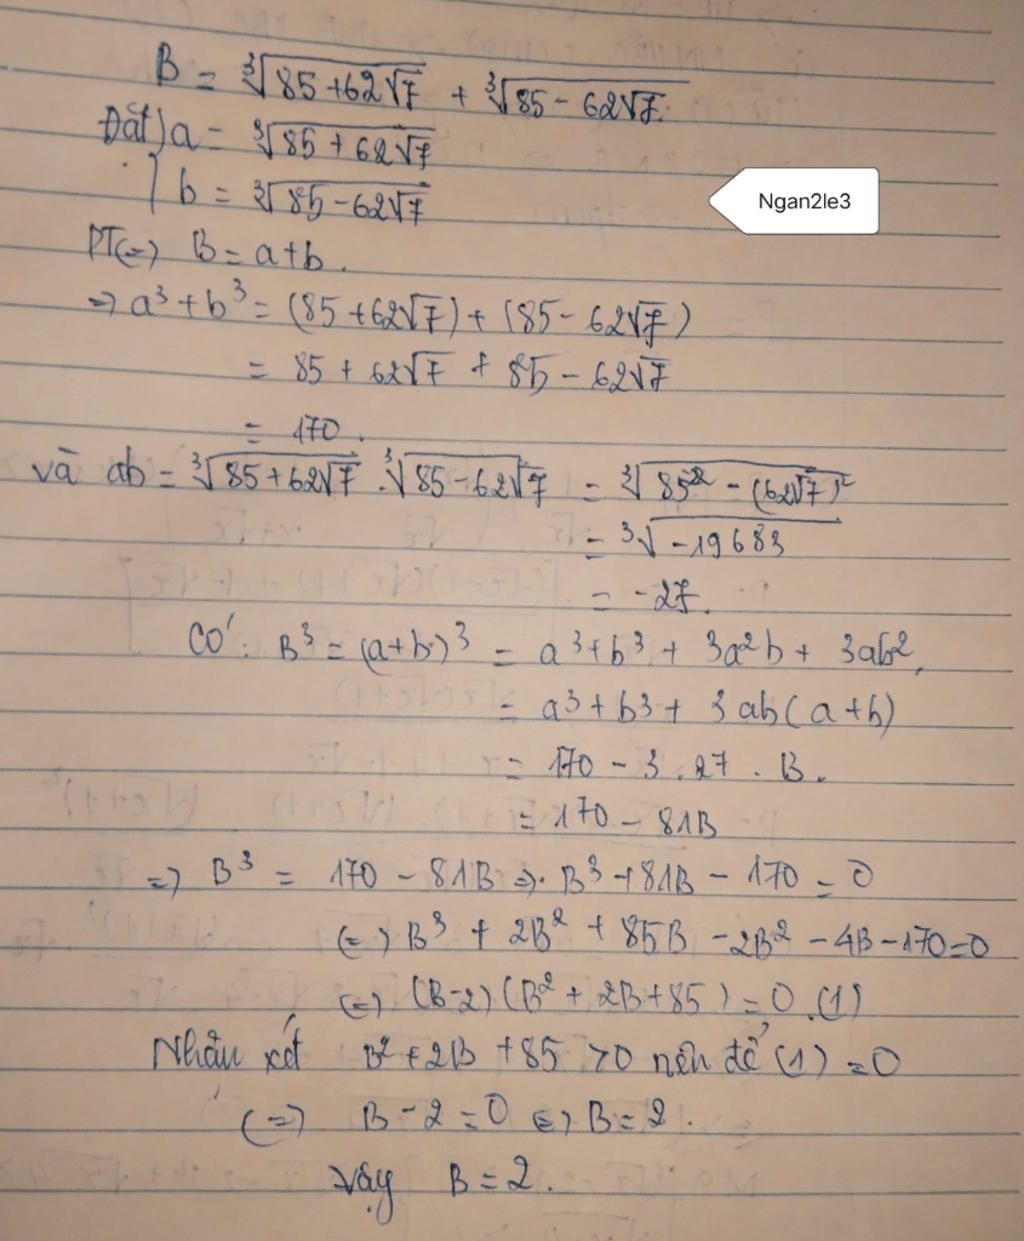 B = ∛(85+62√7) + ∛(85-62√7).
Đặt a = ∛(85+62√7)
b = ∛(85-62√7)
Ngan2le3
PT(=) B = a+b.
=> a³+b³ = (85+62√7)+(85-62√7)
= 85+62√7 + 85-62√7
= 170.
và ab = ∛(85+62√7) . ∛(85-62√7) = ∛(85² - (62√7)²)
= ∛(-19683)
= -27.
Có: B³ = (a+b)³ = a³+b³ + 3a²b + 3ab²,
= a³+b³+ 3ab(a+b)
= 170 - 3.27 . B.
= 170 - 81B
=> B³ = 170 - 81B => B³+81B - 170 = 0
(=) B³ + 2B² + 85B - 2B² - 4B - 170=0
(=) (B-2)(B² + 2B+85) = 0 .(1)
Nhận xét B²+2B +85 >0 nên để (1) =0
(=) B - 2 = 0 (=) B = 2.
Vậy B = 2.